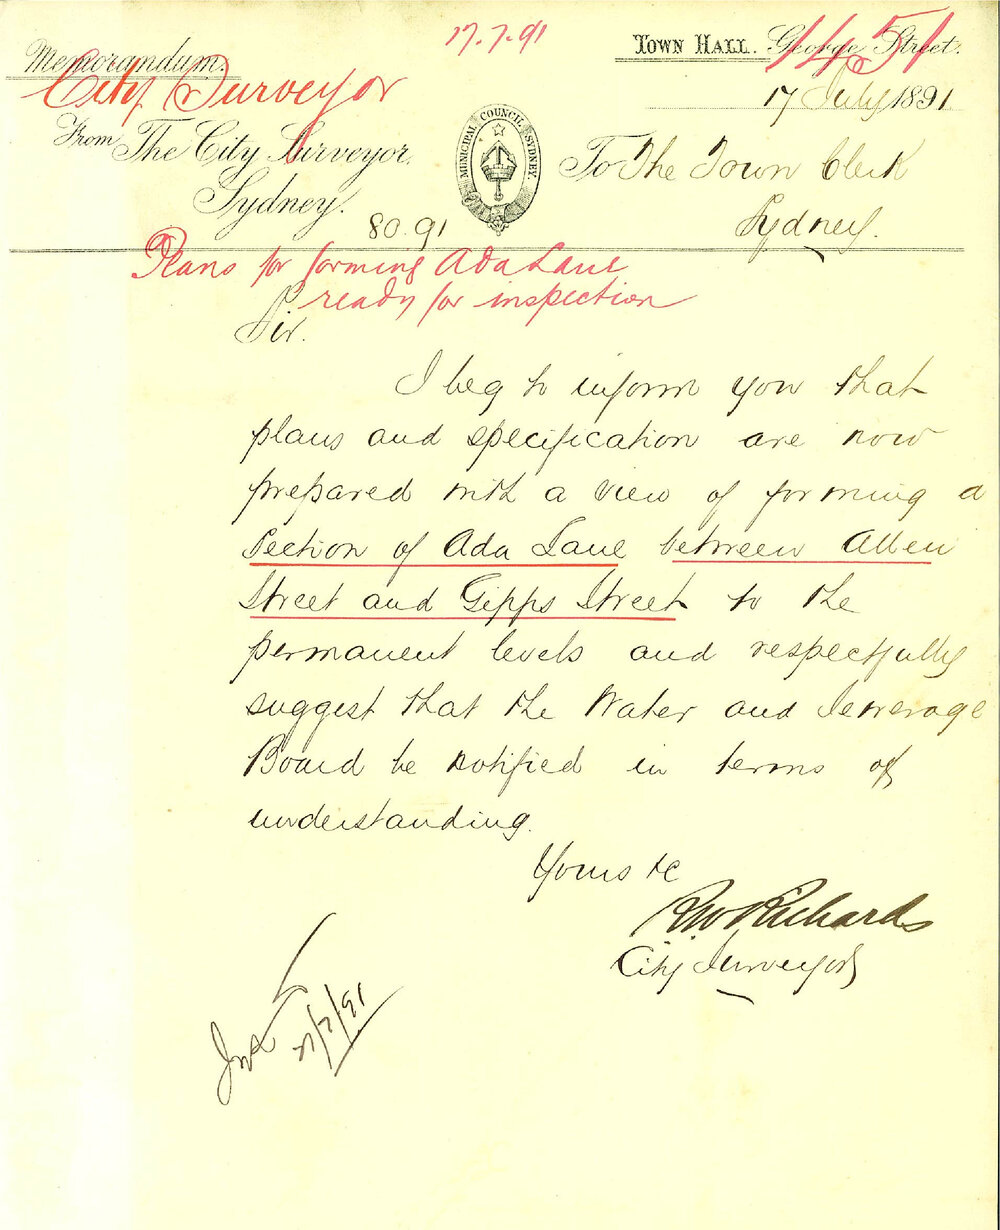 17.7.91
TOWN HALL. George Street.
1451
Memorandum.
City Surveyor
17 July 1891
From The City Surveyor,
Sydney.
MUNICIPAL COUNCIL SYDNEY.
To The Town Clerk
Sydney.
80.91
Plans for forming Ada Lane
ready for inspection
Sir.
I beg to inform you that
plans and specification are now
prepared with a view of forming a
section of Ada Lane between Allen
Street and Gipps Street to the
permanent levels and respectfully
suggest that the Water and Sewerage
Board be notified in terms of
understanding.
Yours &c
RW Richards
City Surveyor